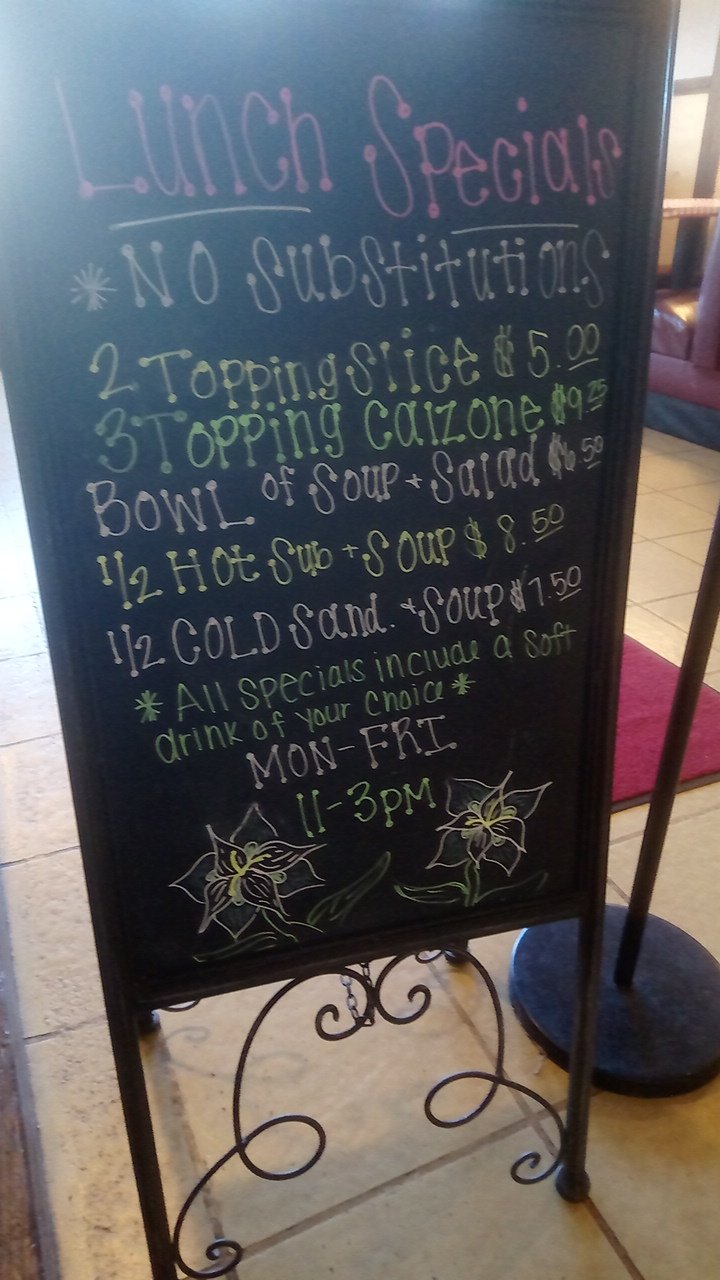 Lunch Specials
*No Substitutions
2 Topping Slice $5.00
3 Topping Calzone $9.25
Bowl of Soup + Salad $6.50
1/2 Hot Sub + Soup $8.50
1/2 COLD Sand. + Soup $7.50
*All Specials include a Soft
drink of your Choice*
MON-FRI
11-3pm